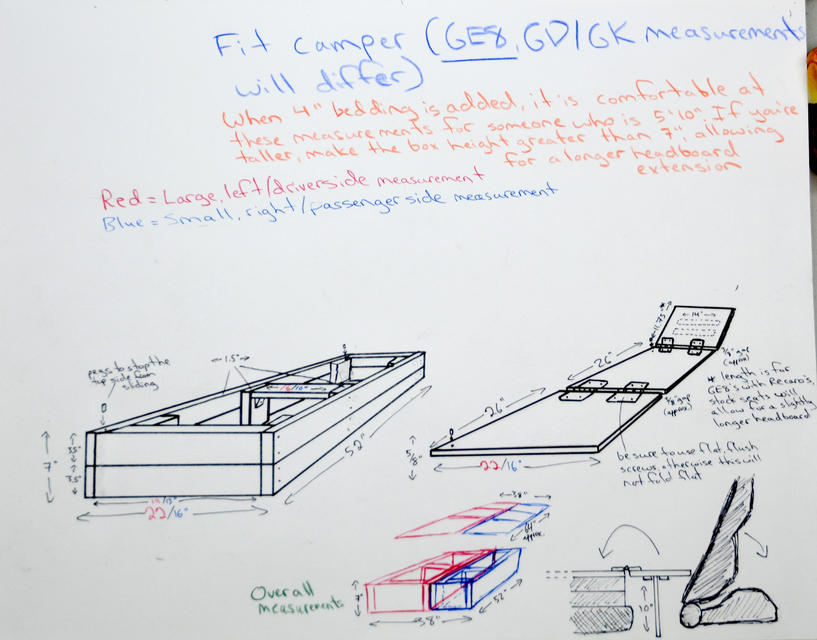 Fit camper (GE8, GD/GK measurements
will differ)
When 4" bedding is added, it is comfortable at
these measurements for someone who is 5'10". If you're
taller, make the box height greater than 7", allowing
for a longer headboard
extension
Red = Large, left/driverside measurement
Blue = Small, right/passenger side measurement
pegs to stop the
top side from
sliding
1.5"
7"
3.5"
3.5"
52"
22/16"
11.75"
14"
3/8" gap
(approx)
26"
26"
3/8" gap
(approx)
* length is for
GE8's with Recaro's,
stock seats will
allow for a slightly
longer headboard
5/8"
22/16"
be sure to use flat, flush
screws, otherwise this will
not fold flat
38"
64"
approx
Overall
measurements
7"
52"
38"
10"